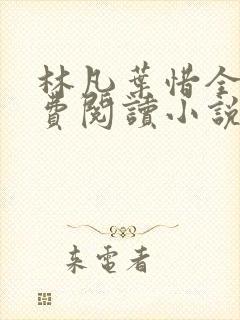 林凡葉惜全
費閱讀小說
来電者